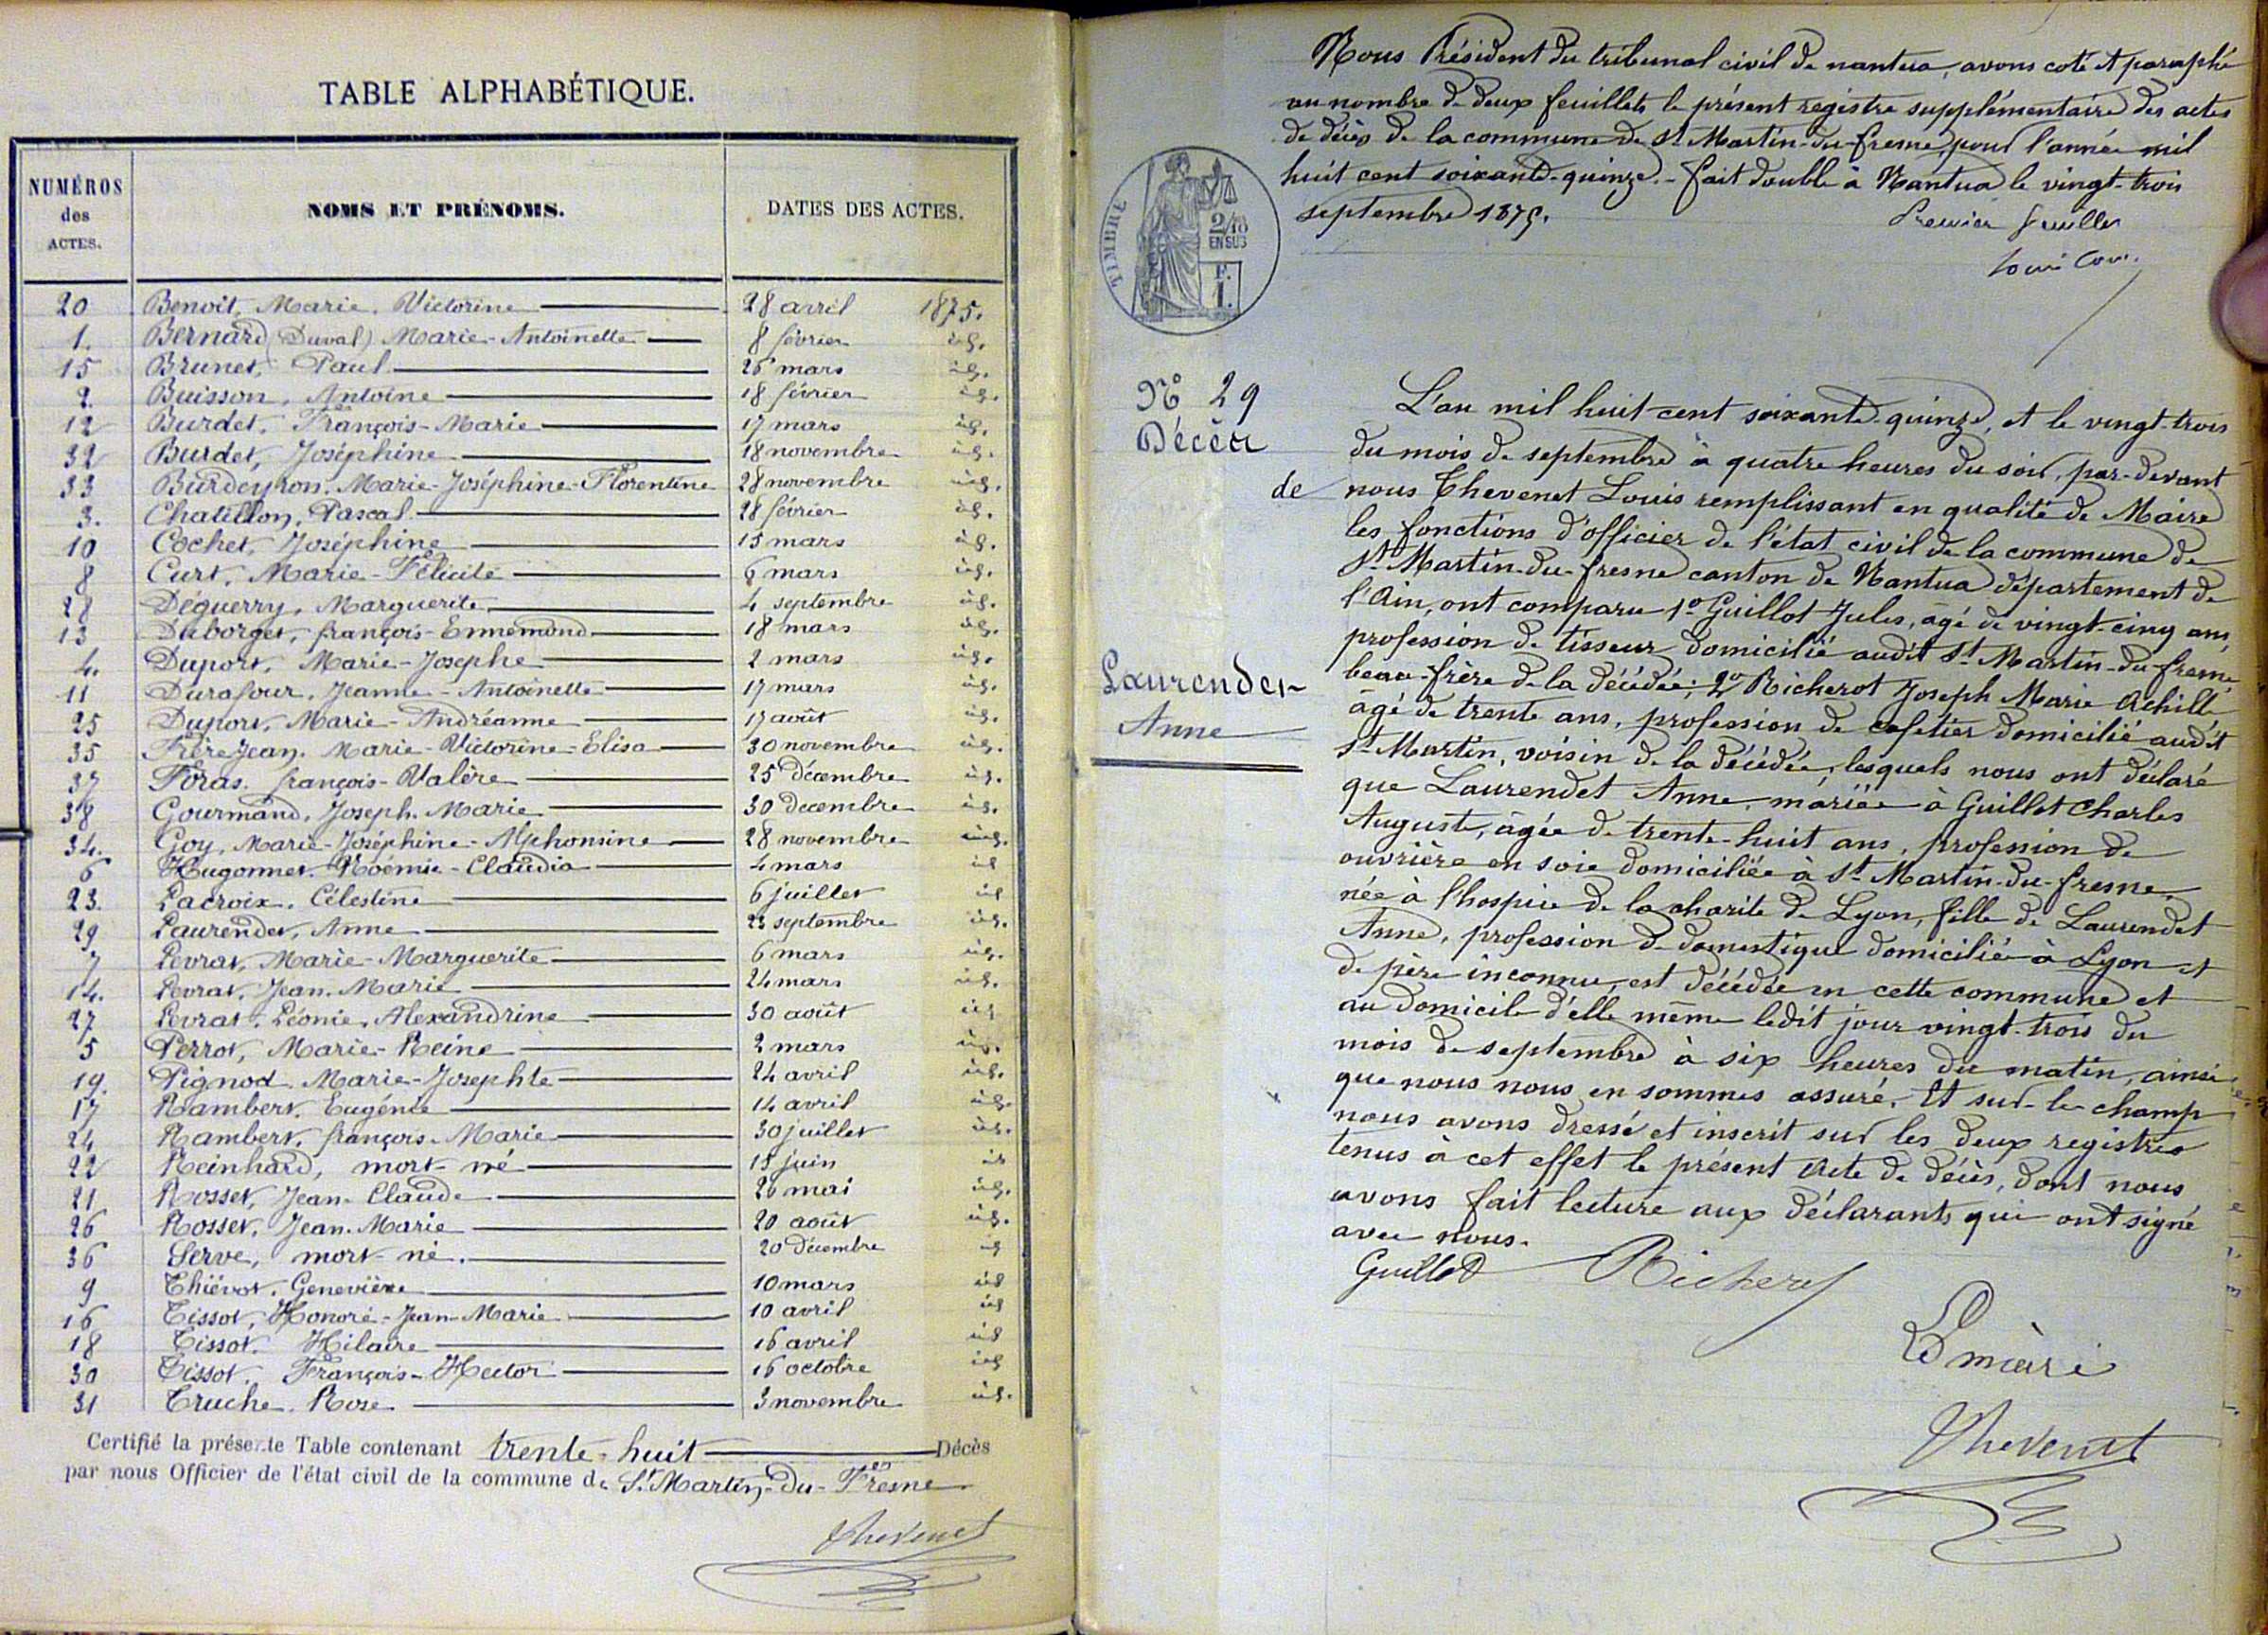 TABLE ALPHABÉTIQUE.
NUMÉROS des ACTES. NOMS ET PRÉNOMS. DATES DES ACTES.
20 Benoit, Marie. Victorine 28 avril 1875.
1. Bernard (Duval) Marie-Antoinette 8 février id.
15 Brunet, Paul 26 mars id.
2. Buisson, Antoine 18 février id.
12 Burdet, François-Marie 17 mars id.
32 Burdet, Joséphine 18 novembre id.
33 Burdeyron. Marie-Joséphine-Florentine 28 novembre id.
3. Chatillon, Pascal 28 février id.
10 Cochet, Joséphine 15 mars id.
8 Curt, Marie-Félicité 6 mars id.
28 Déguerry, Marguerite 4 septembre id.
13 Duborget, françois-Ennemond 18 mars id.
4. Duport, Marie-Josephe 2 mars id.
11 Durafour, Jeanne-Antoinette 17 mars id.
25 Duport, Marie-Andréanne 17 août id.
35 FrèreJean. Marie-Victorine-Elisa 30 novembre id.
37 Foras. françois-Valère 25 décembre id.
38 Gourmand, Joseph. Marie 30 decembre id.
34. Goy, Marie-Joséphine-Alphonsine 28 novembre id.
6 Hugonnet. Noémie-Claudia 4 mars id
23. Lacroix. Célestine 6 juillet id
29 Laurendet, Anne 23 septembre id.
7 Levrat, Marie-Marguerite 6 mars id.
14. Levrat, Jean. Marie 24 mars id.
27 Levrat. Léonie. Alexandrine 30 août id
5 Perrot, Marie-Reine 2 mars id.
19. Pignod. Marie-Josephte 24 avril id.
17 Rambert. Eugénie 14 avril id.
24 Rambert, françois-Marie 30 juillet id.
22 Reinhard, mort-né 15 juin id
21 Rosset, Jean-Claude 26 mai id.
26 Rosset, Jean. Marie 20 août id.
36 Serve, mort-né. 20 décembre id
9 Thiévot, Geneviève 10 mars id
16 Tissot, Honoré-Jean-Marie 10 avril id
18 Tissot. Hilaire 16 avril id
30 Tissot. François-Hector 16 octobre id
31 Truche. Rose 3 novembre id.
Certifié la présente Table contenant trente-huit Décès
par nous Officier de l'état civil de la commune de St. Martin-du-Fresne
Thevenet
Nous Président du tribunal civil de nantua, avons coté et paraphé
au nombre de deux feuillets le présent registre supplémentaire des actes
de décès de la commune de St Martin-du-fresne, pour l'année mil
huit cent soixante-quinze.- fait double à Nantua le vingt-trois
septembre 1875.
Premier feuillet
TIMBRE
2/10
EN SUS
F.
1.
No 29
Décès
de
Laurendet
Anne
L'an mil huit cent soixante-quinze, et le vingt-trois
du mois de septembre à quatre heures du soir, par-devant
nous Thevenet Louis remplissant en qualité de Maire
les fonctions d'officier de l'état civil de la commune de
St Martin-du-fresne canton de Nantua département de
l'Ain, ont comparu 1o Guillot Jules, âgé de vingt-cinq ans,
profession de tisseur domicilié audit St Martin-du-fresne,
beau-frère de la décédée; 2o Richerot Joseph Marie Achille
âgé de trente ans, profession de cafetier domicilié audit
St Martin, voisin de la décédée, lesquels nous ont déclaré
que Laurendet Anne mariée à Guillot Charles
Auguste, âgée de trente-huit ans, profession de
ouvrière en soie domiciliée à St Martin-du-fresne,
née à l'hospice de la charité de Lyon, fille de Laurendet
Anne, profession de domestique domiciliée à Lyon et
de père inconnu, est décédée en cette commune et
au domicile d'elle même ledit jour vingt-trois du
mois de septembre à six heures du matin, ainsi
que nous nous en sommes assuré. Et sur-le-champ
nous avons dressé et inscrit sur les deux registres
tenus à cet effet le présent Acte de décès, dont nous
avons fait lecture aux déclarants qui ont signé
avec nous.
Guillot Richerot
Thevenet